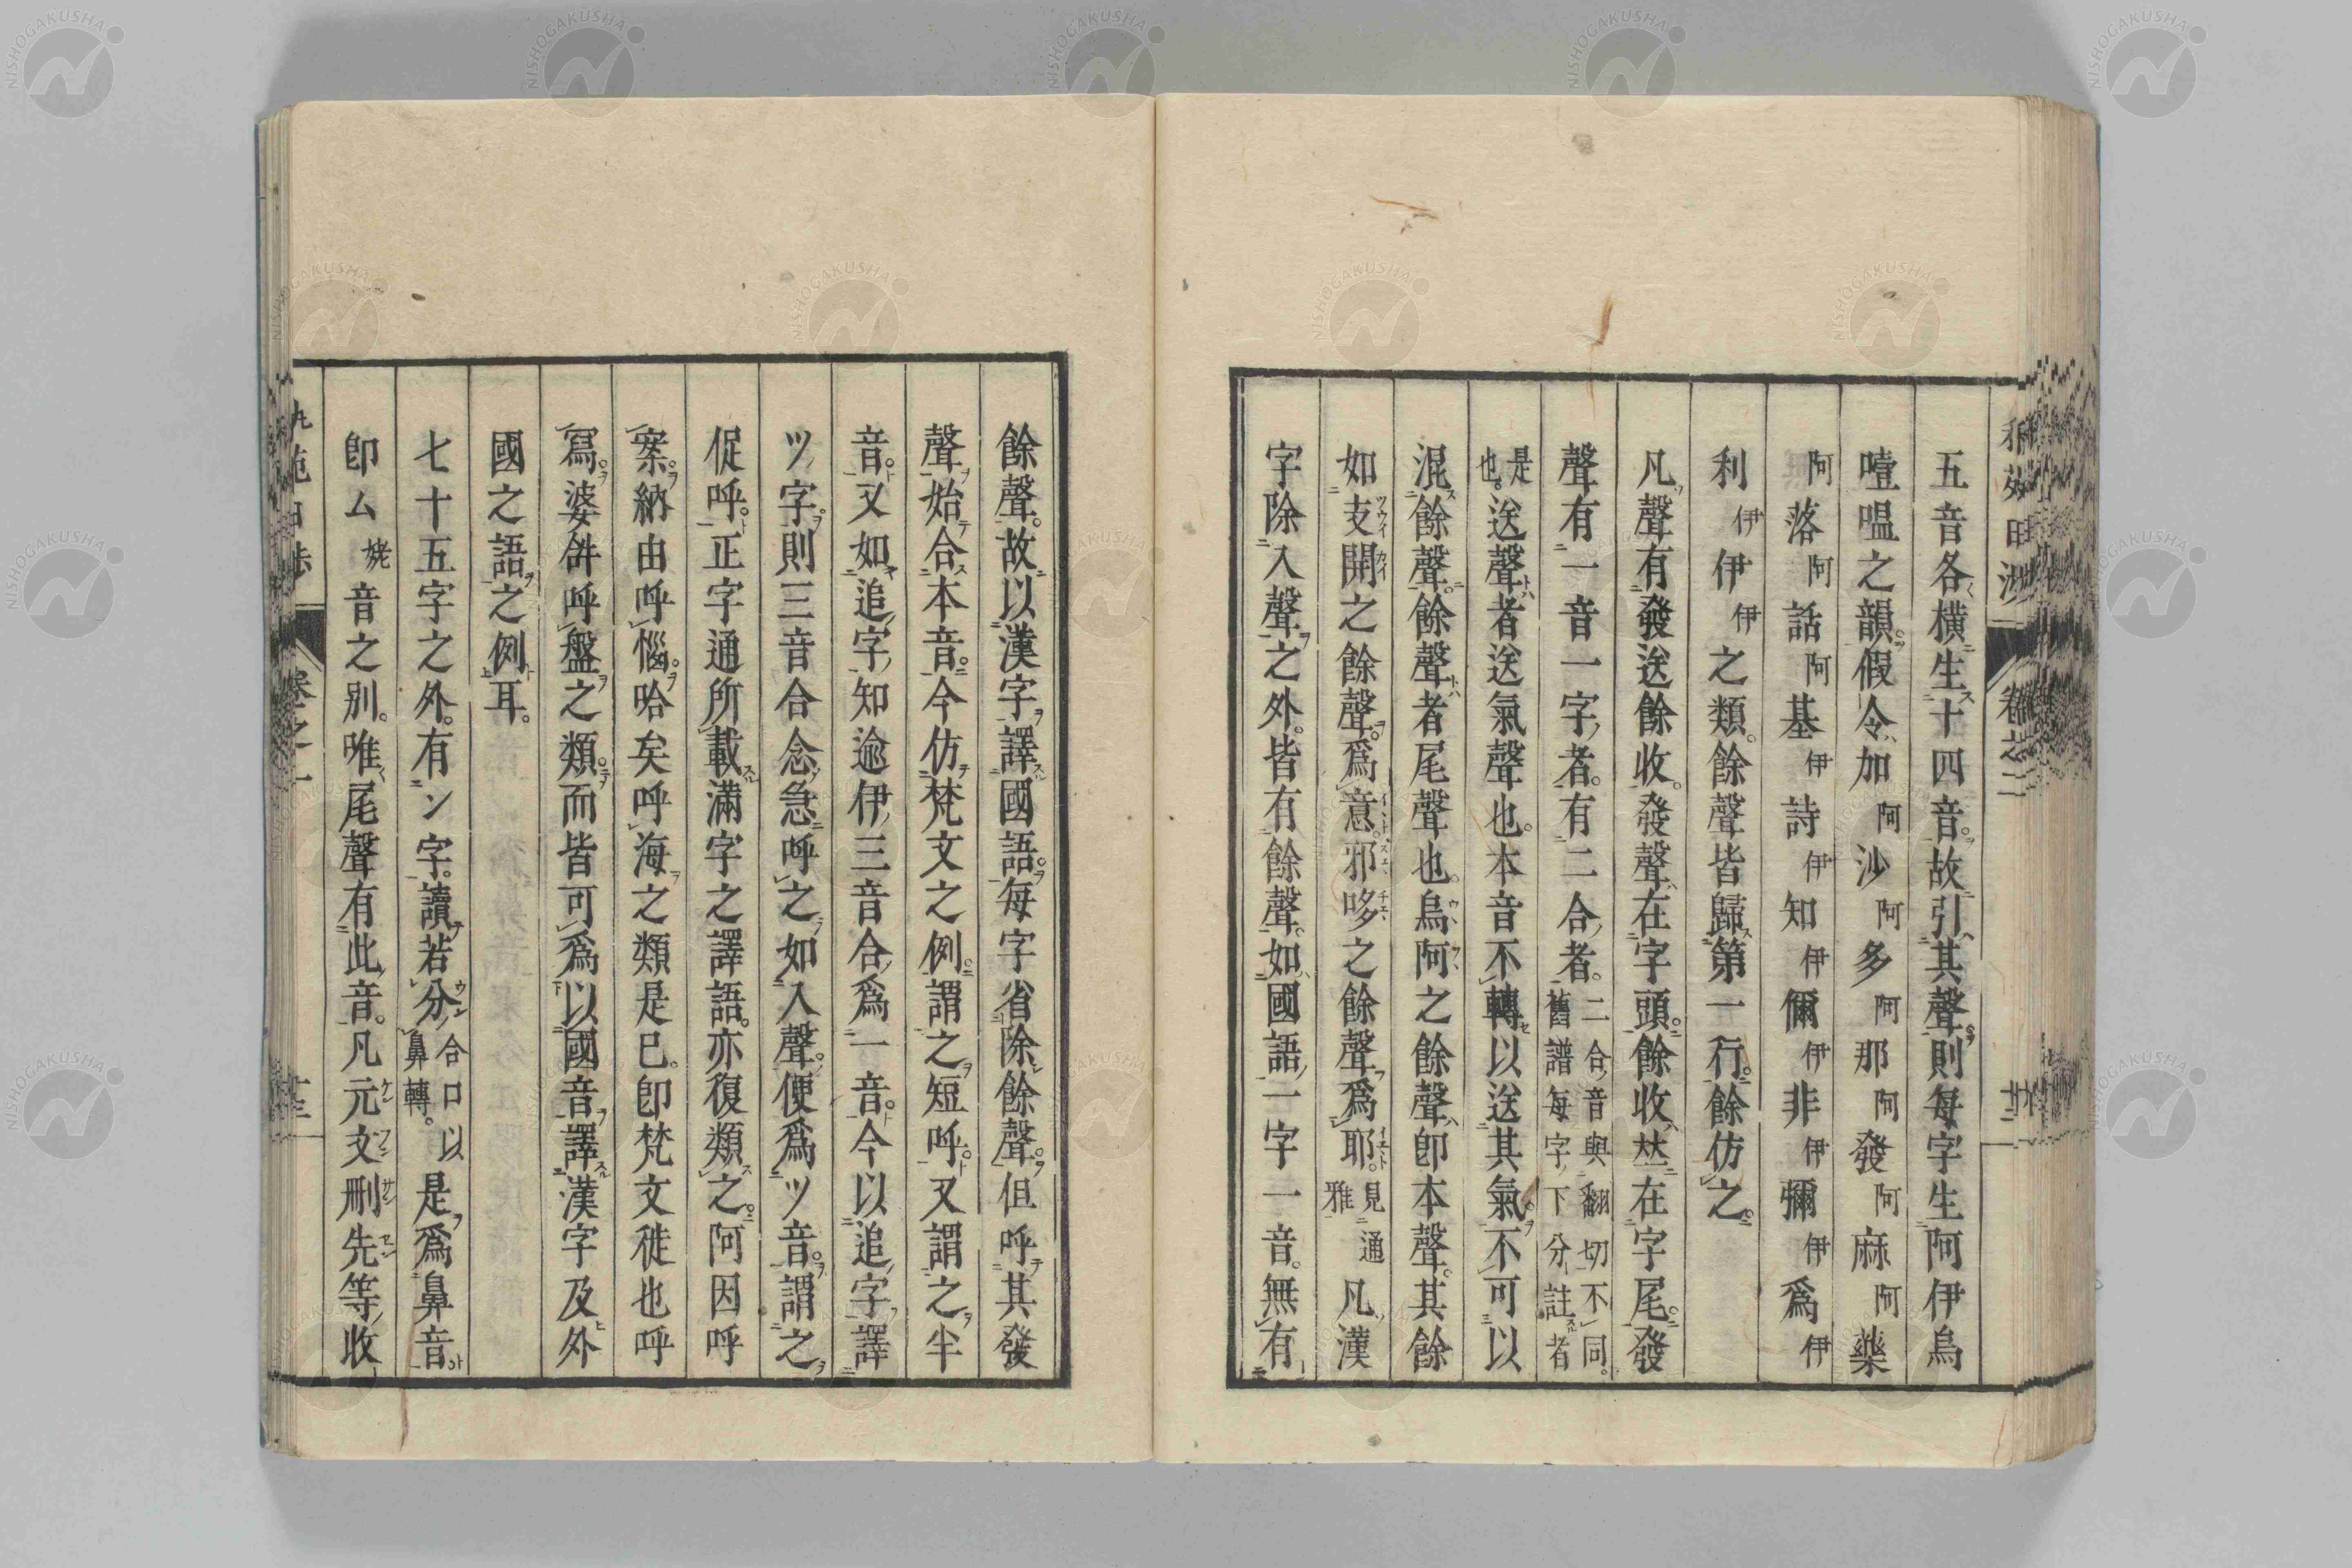 五音各橫生十四音。故引其聲則每字生阿伊烏
噎嗢之韻。假令加阿沙阿多阿那阿發阿麻阿藥
阿落阿話阿基伊詩伊知伊爾伊非伊彌伊爲伊
利伊伊伊之類。餘聲皆歸第一行。餘仿之。
凡聲有發送餘收。發聲在字頭。餘收竝在字尾。發
聲有一音一字者。有二合者。二合音與翻切不同。舊譜每字下分註者
是也。送聲者送氣聲也。本音不轉以送其氣。不可以
混餘聲。餘聲者尾聲也。烏阿之餘聲卽本聲。其餘
如支開之餘聲。爲意。邪哆之餘聲爲耶。見通雅凡漢
字除入聲之外。皆有餘聲。如國語一字一音。無有
餘聲。故以漢字譯國語。每字省除餘聲。但呼其發
聲始合本音。今仿梵文之例。謂之短呼。又謂之半
音。又如追字知逾伊三音合爲一音。今以追字譯
ツ字。則三音合念急呼之。如入聲。便爲ツ音。謂之
促呼。正字通所載滿字之譯語。亦復類之。阿因呼
案。納由呼惱。哈矣呼海之類是已。卽梵文徙也呼
寫。婆倂呼盤之類。而皆可爲以國音譯漢字及外
國之語之例耳。
七十五字之外。有ン字。讀若分合口以鼻轉。是爲鼻音
卽ム姥音之别。唯尾聲有此音。凡元文刪先等收
卷之二